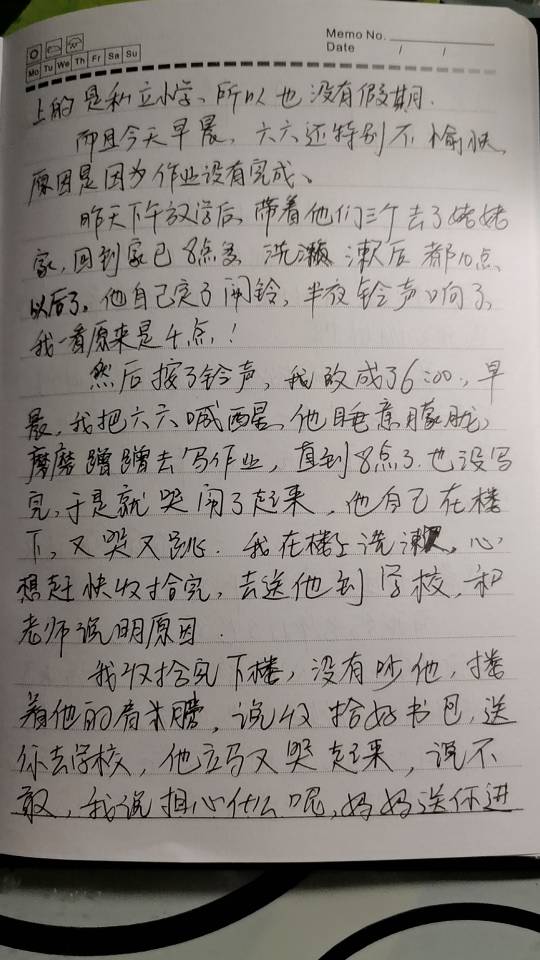 Memo No.
Mo Tu We Th Fr Sa Su
Date / /
上的是私立小学、所以也没有假期.
而且今天早晨,六六还特别不愉快,
原因是因为作业没有完成、
昨天下午放学后,带着他们三个去了姥姥
家,回到家已8点多 洗漱后都10点
以后了,他自己定了闹铃,半夜铃声响了,
我一看原来是4点!
然后按了铃声,我改成了6:00.,早
晨,我把六六喊醒,他睡意朦胧,
磨磨蹭蹭去写作业,直到8点了.也没写
完,于是就哭闹了起来,他自己在楼
下,又哭又跳.我在楼上洗漱,心
想赶快收拾完,去送他到学校,和
老师说明原因.
我收拾完下楼,没有吵他,搂
着他的肩膀,说收拾好书包,送
你去学校,他立马又哭起来,说不
敢,我说担心什么呢,妈妈送你进